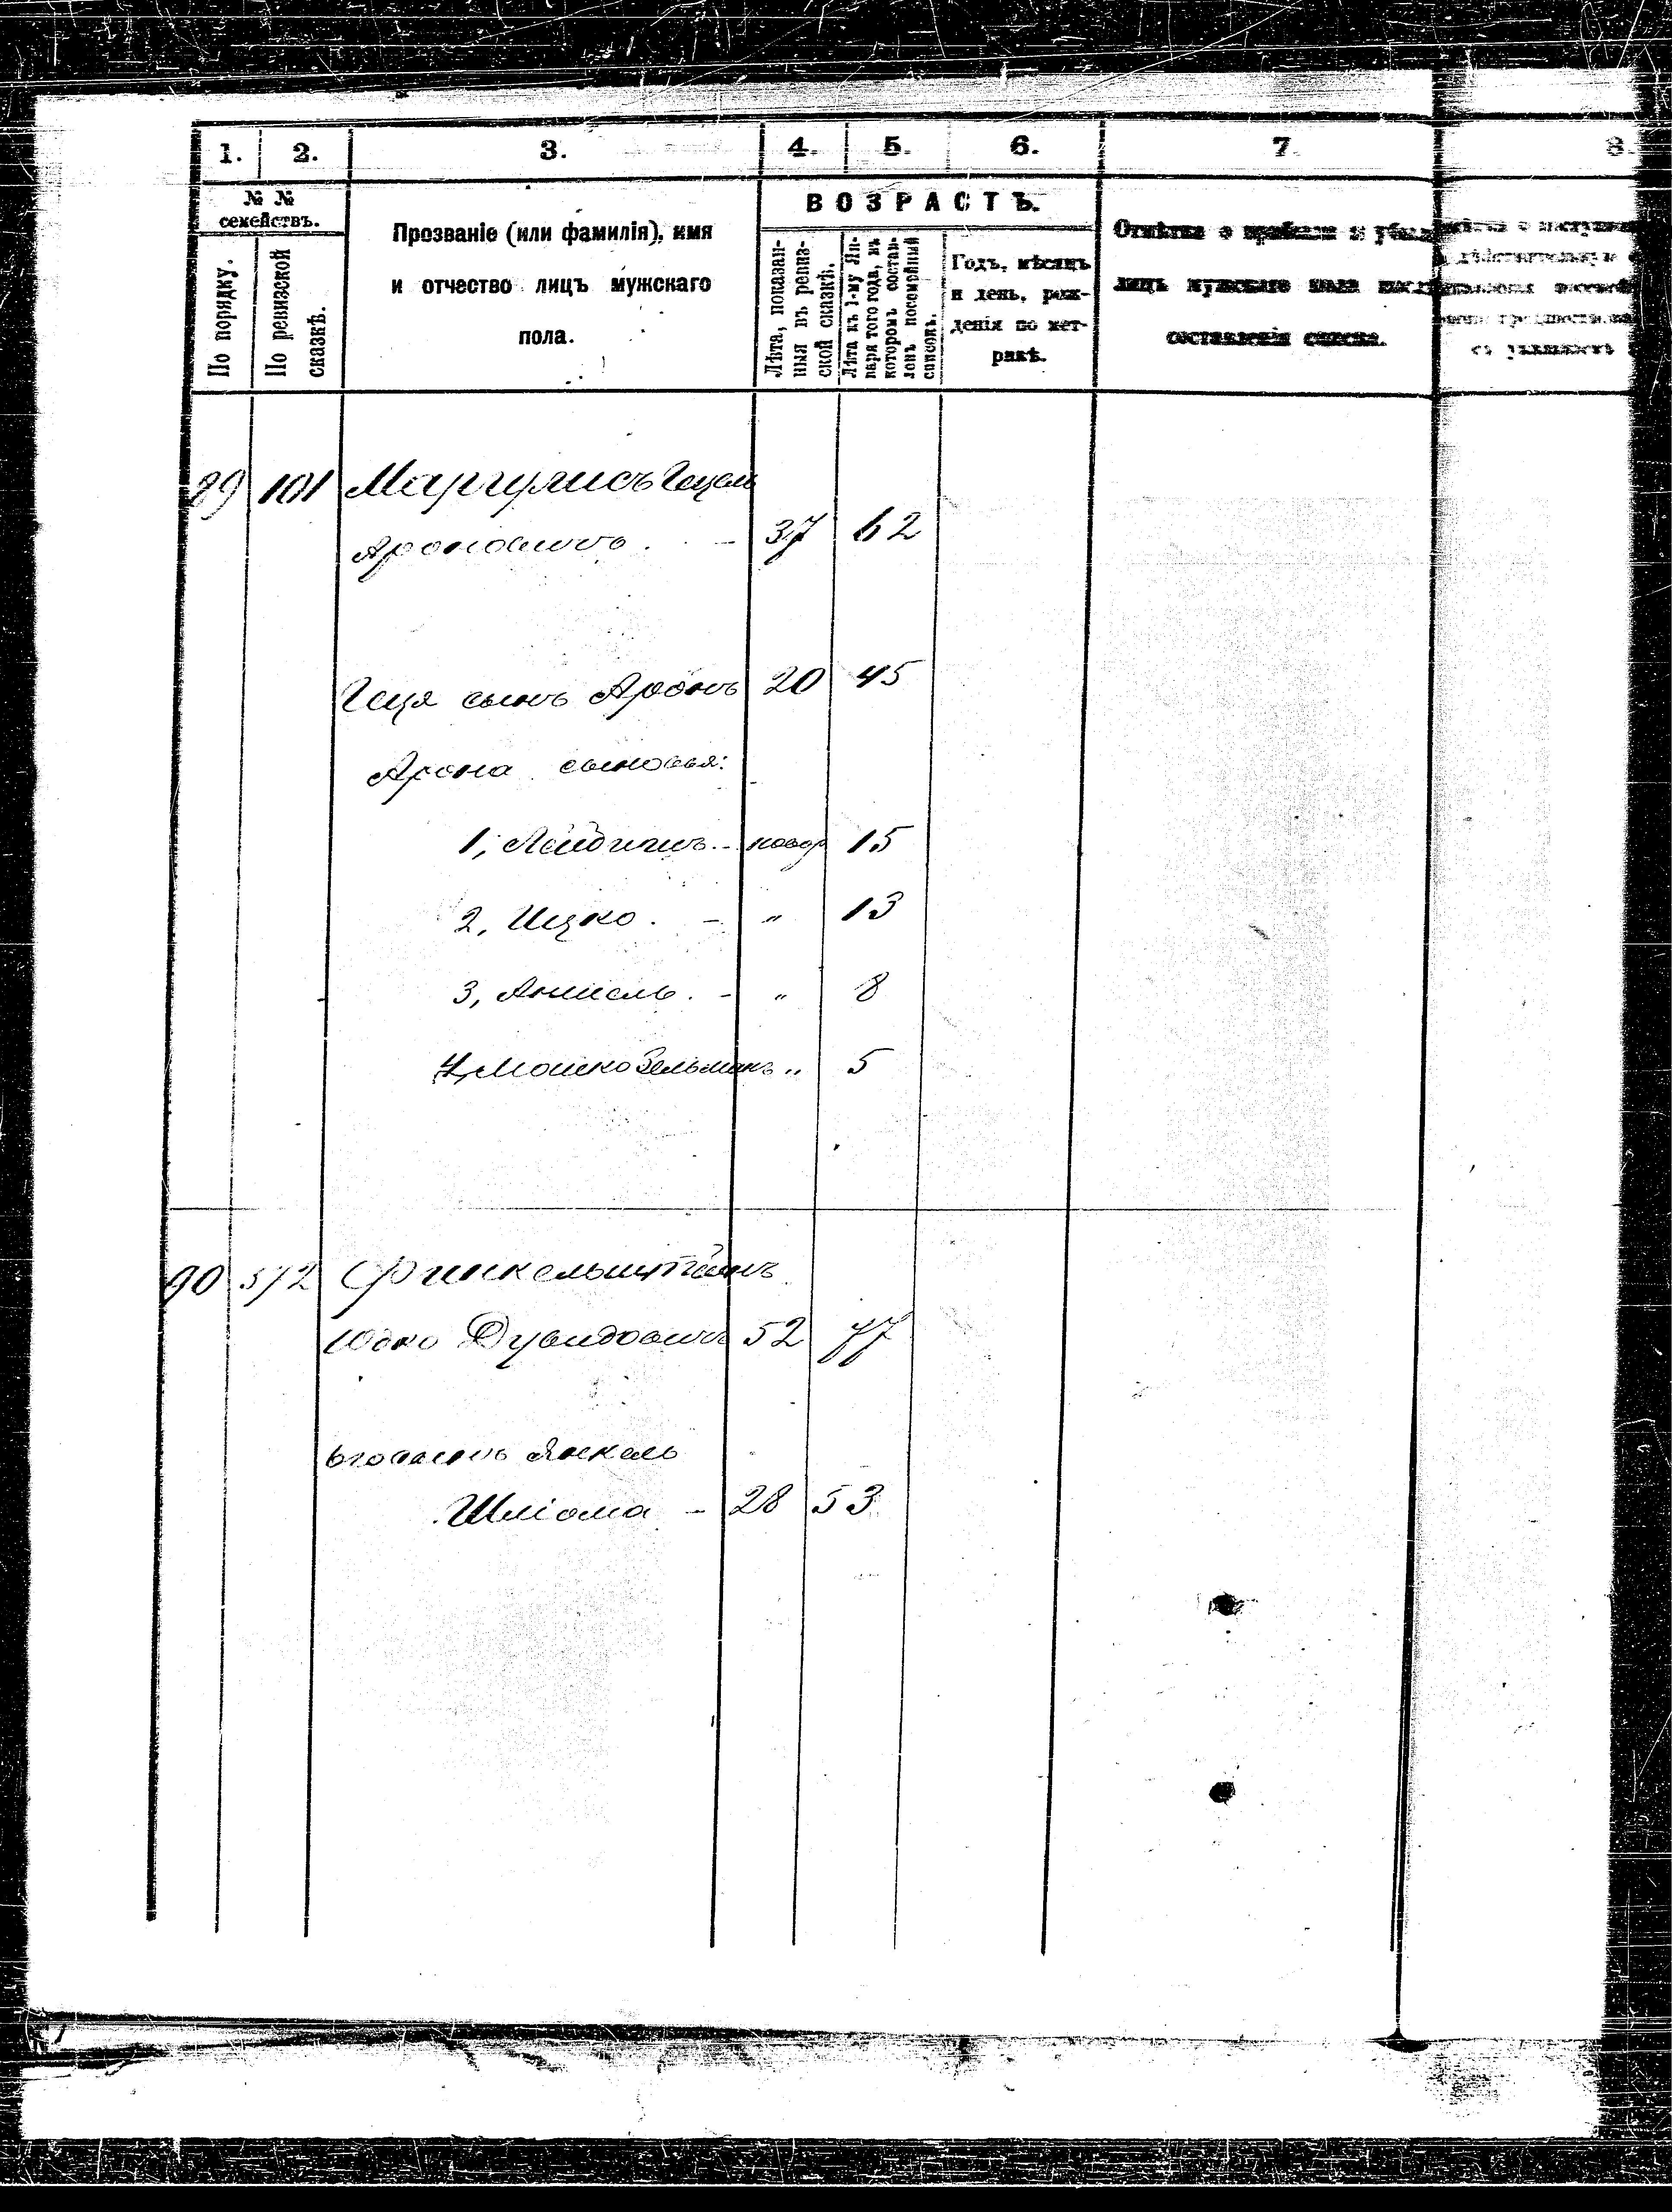 1. 2. 3. 4. 5. 6. 7. 8.
№ №
семействъ.
По порядку.
По ревизской
сказкѣ.
Прозваніе (или фамилія), имя
и отчество лицъ мужскаго
пола.
ВОЗРАСТЪ.
Лѣта, показан-
ныя въ ревиз-
ской сказкѣ.
Лѣта къ 1-му Ян-
варя того года, въ
которомъ состав-
ленъ посемейный
списокъ.
Годъ, мѣсяцъ
и день, рож-
денія по мет-
рикѣ.
Отмѣтка о прибыли и
лицъ мужскаго пола
составленія списка.
89 101 Маргулисъ Гецель
Ароновичъ. - 37 62
Геця сынъ Аронъ 20 45
Арона сыновья:
1, - новор 15
2, Ицко. - " 13
3, Аншель. - " 8
4, Мошко Зельманъ " 5
90 572 Финкельштейнъ
Юдко Дувидовичъ 52 77
Его сынъ Янкель
Шліома - 28 53